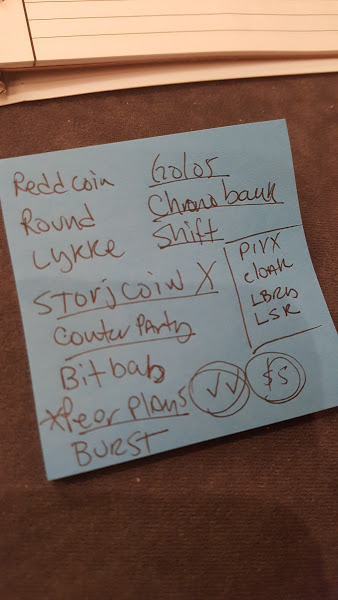 Reddcoin
Round
Lykke
Storjcoin X
Couter Party
Bitbab
xPeer Plans
BURST
Golos
Chronobank
Shift
PIVX
Cloak
LBRY
LSK
VV
$5